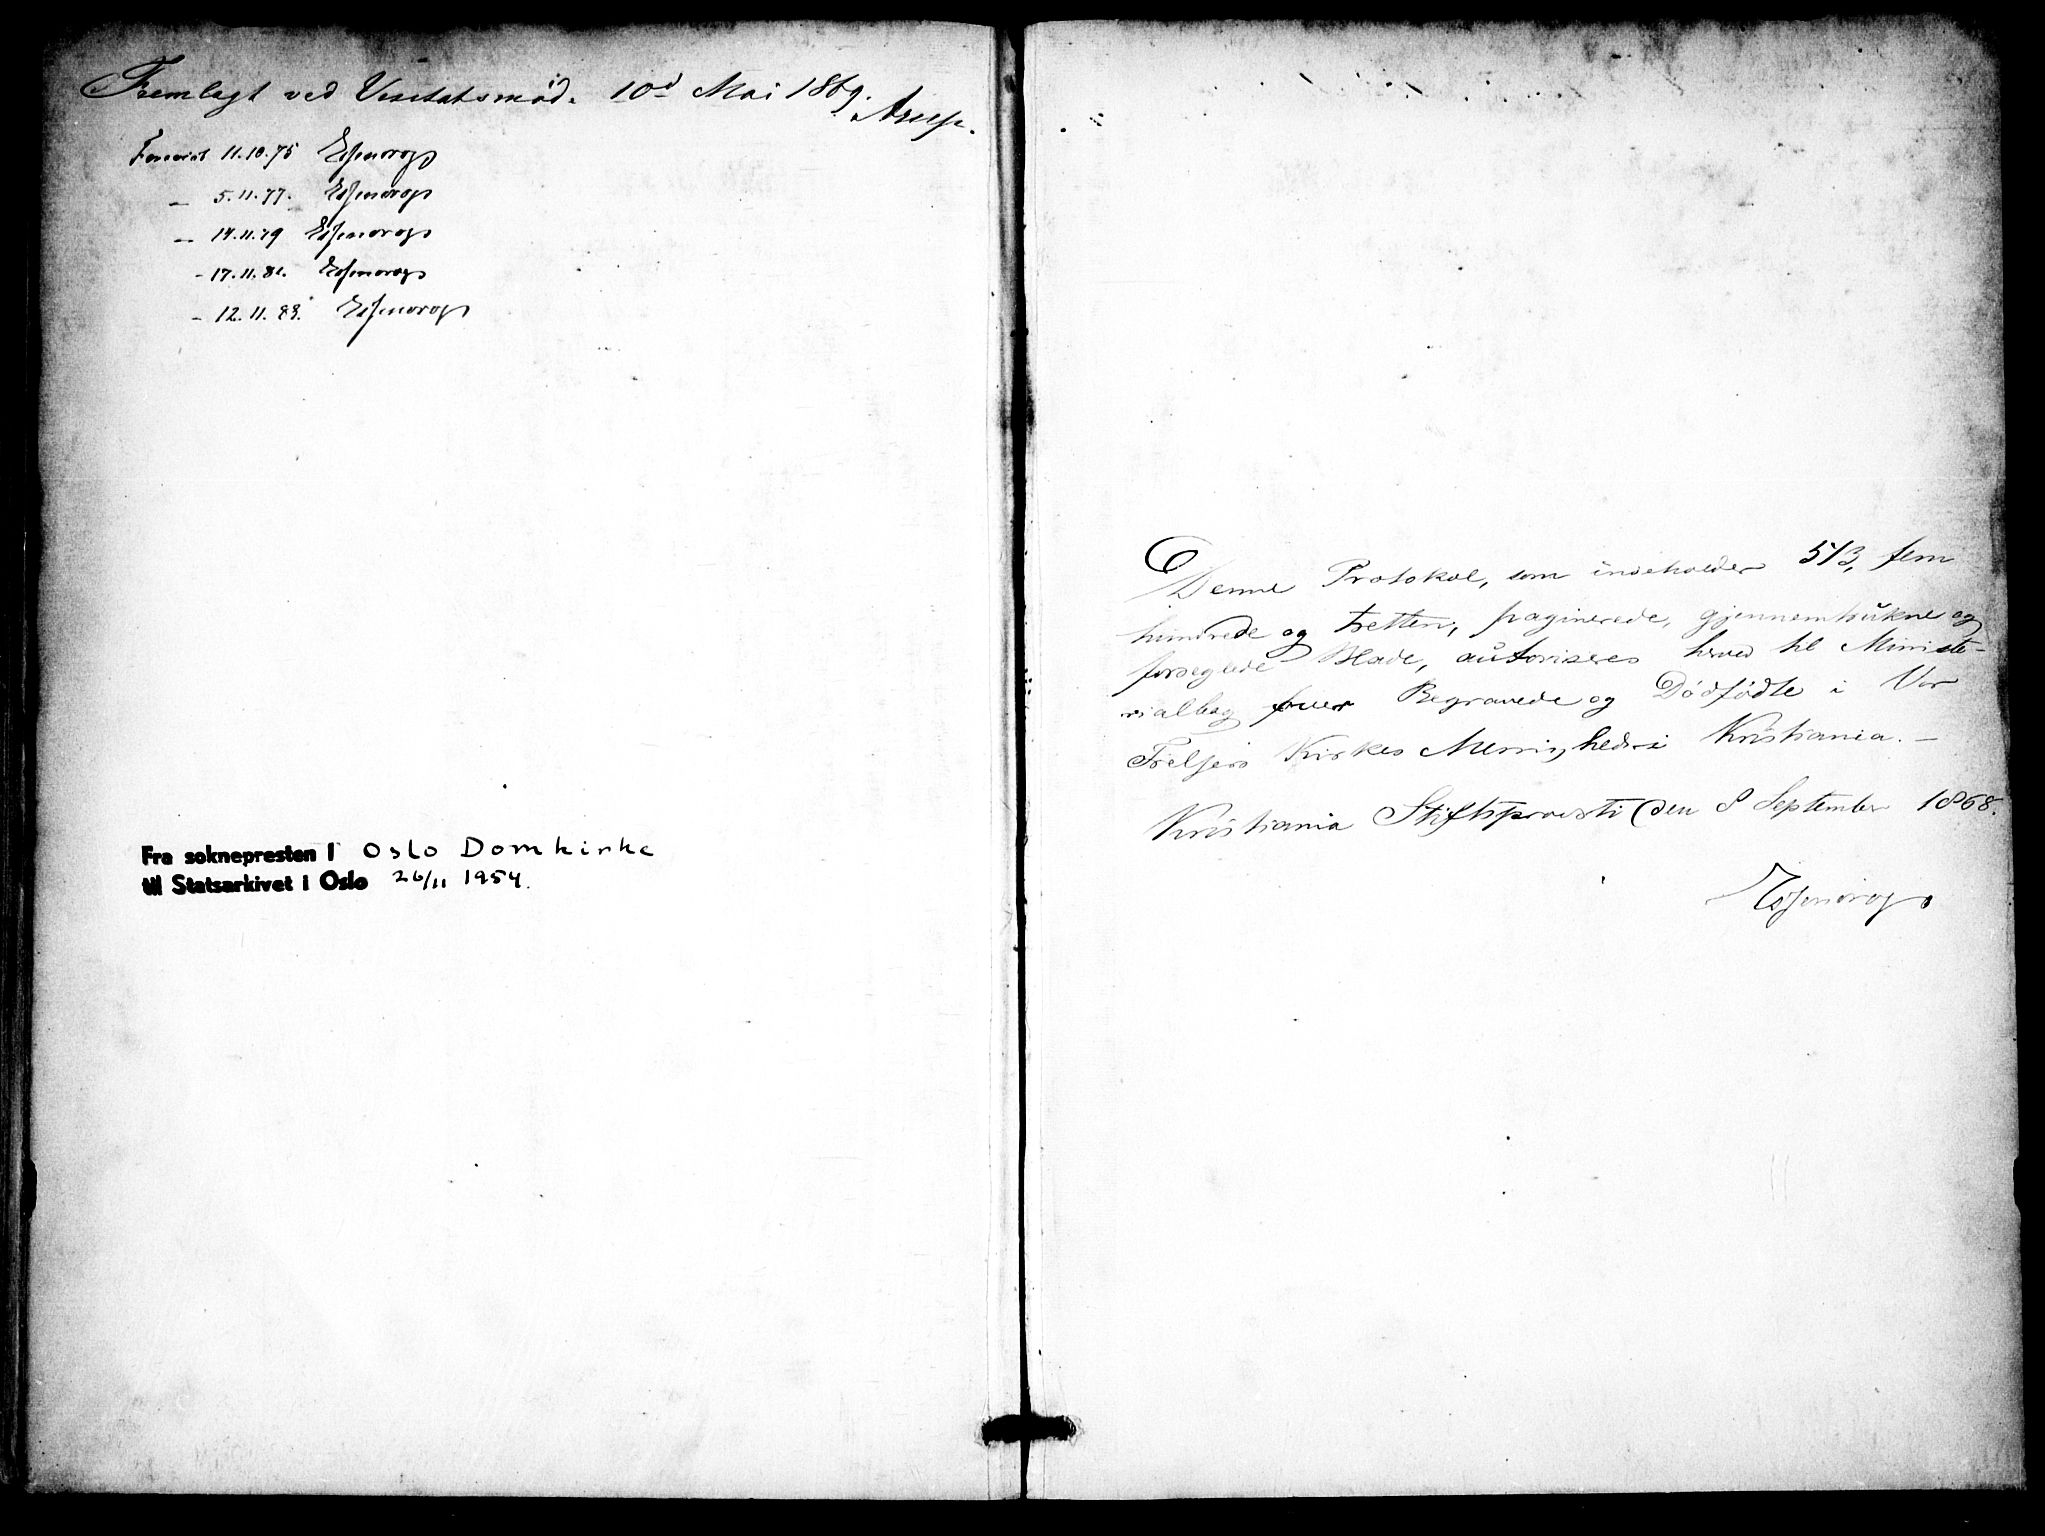 Fremlagt ved Visitatsmöde 10d Mai 1869.
Arup.
Forevist 11.10.75 Essendrop
— 5.11.77. Essendrop
— 14.11.79 Essendrop
- 17.11.81. Essendrop
- 12.11.83. Essendrop
Fra soknepresten i Oslo Domkirke
til Statsarkivet i Oslo 26/11 1954.
Denne Protokol, som indeholder 513, fem
hundrede og tretten, paginerede, gjennemtrukne og
forseglede Blade, autoriseres herved til Ministe-
rialbog over Begravede og Dödfödte i Vor
Frelsers Kirkes Menighed i Kristiania. —
Kristiania Stiftsprovsti den 8 September 1868.
Essendrop